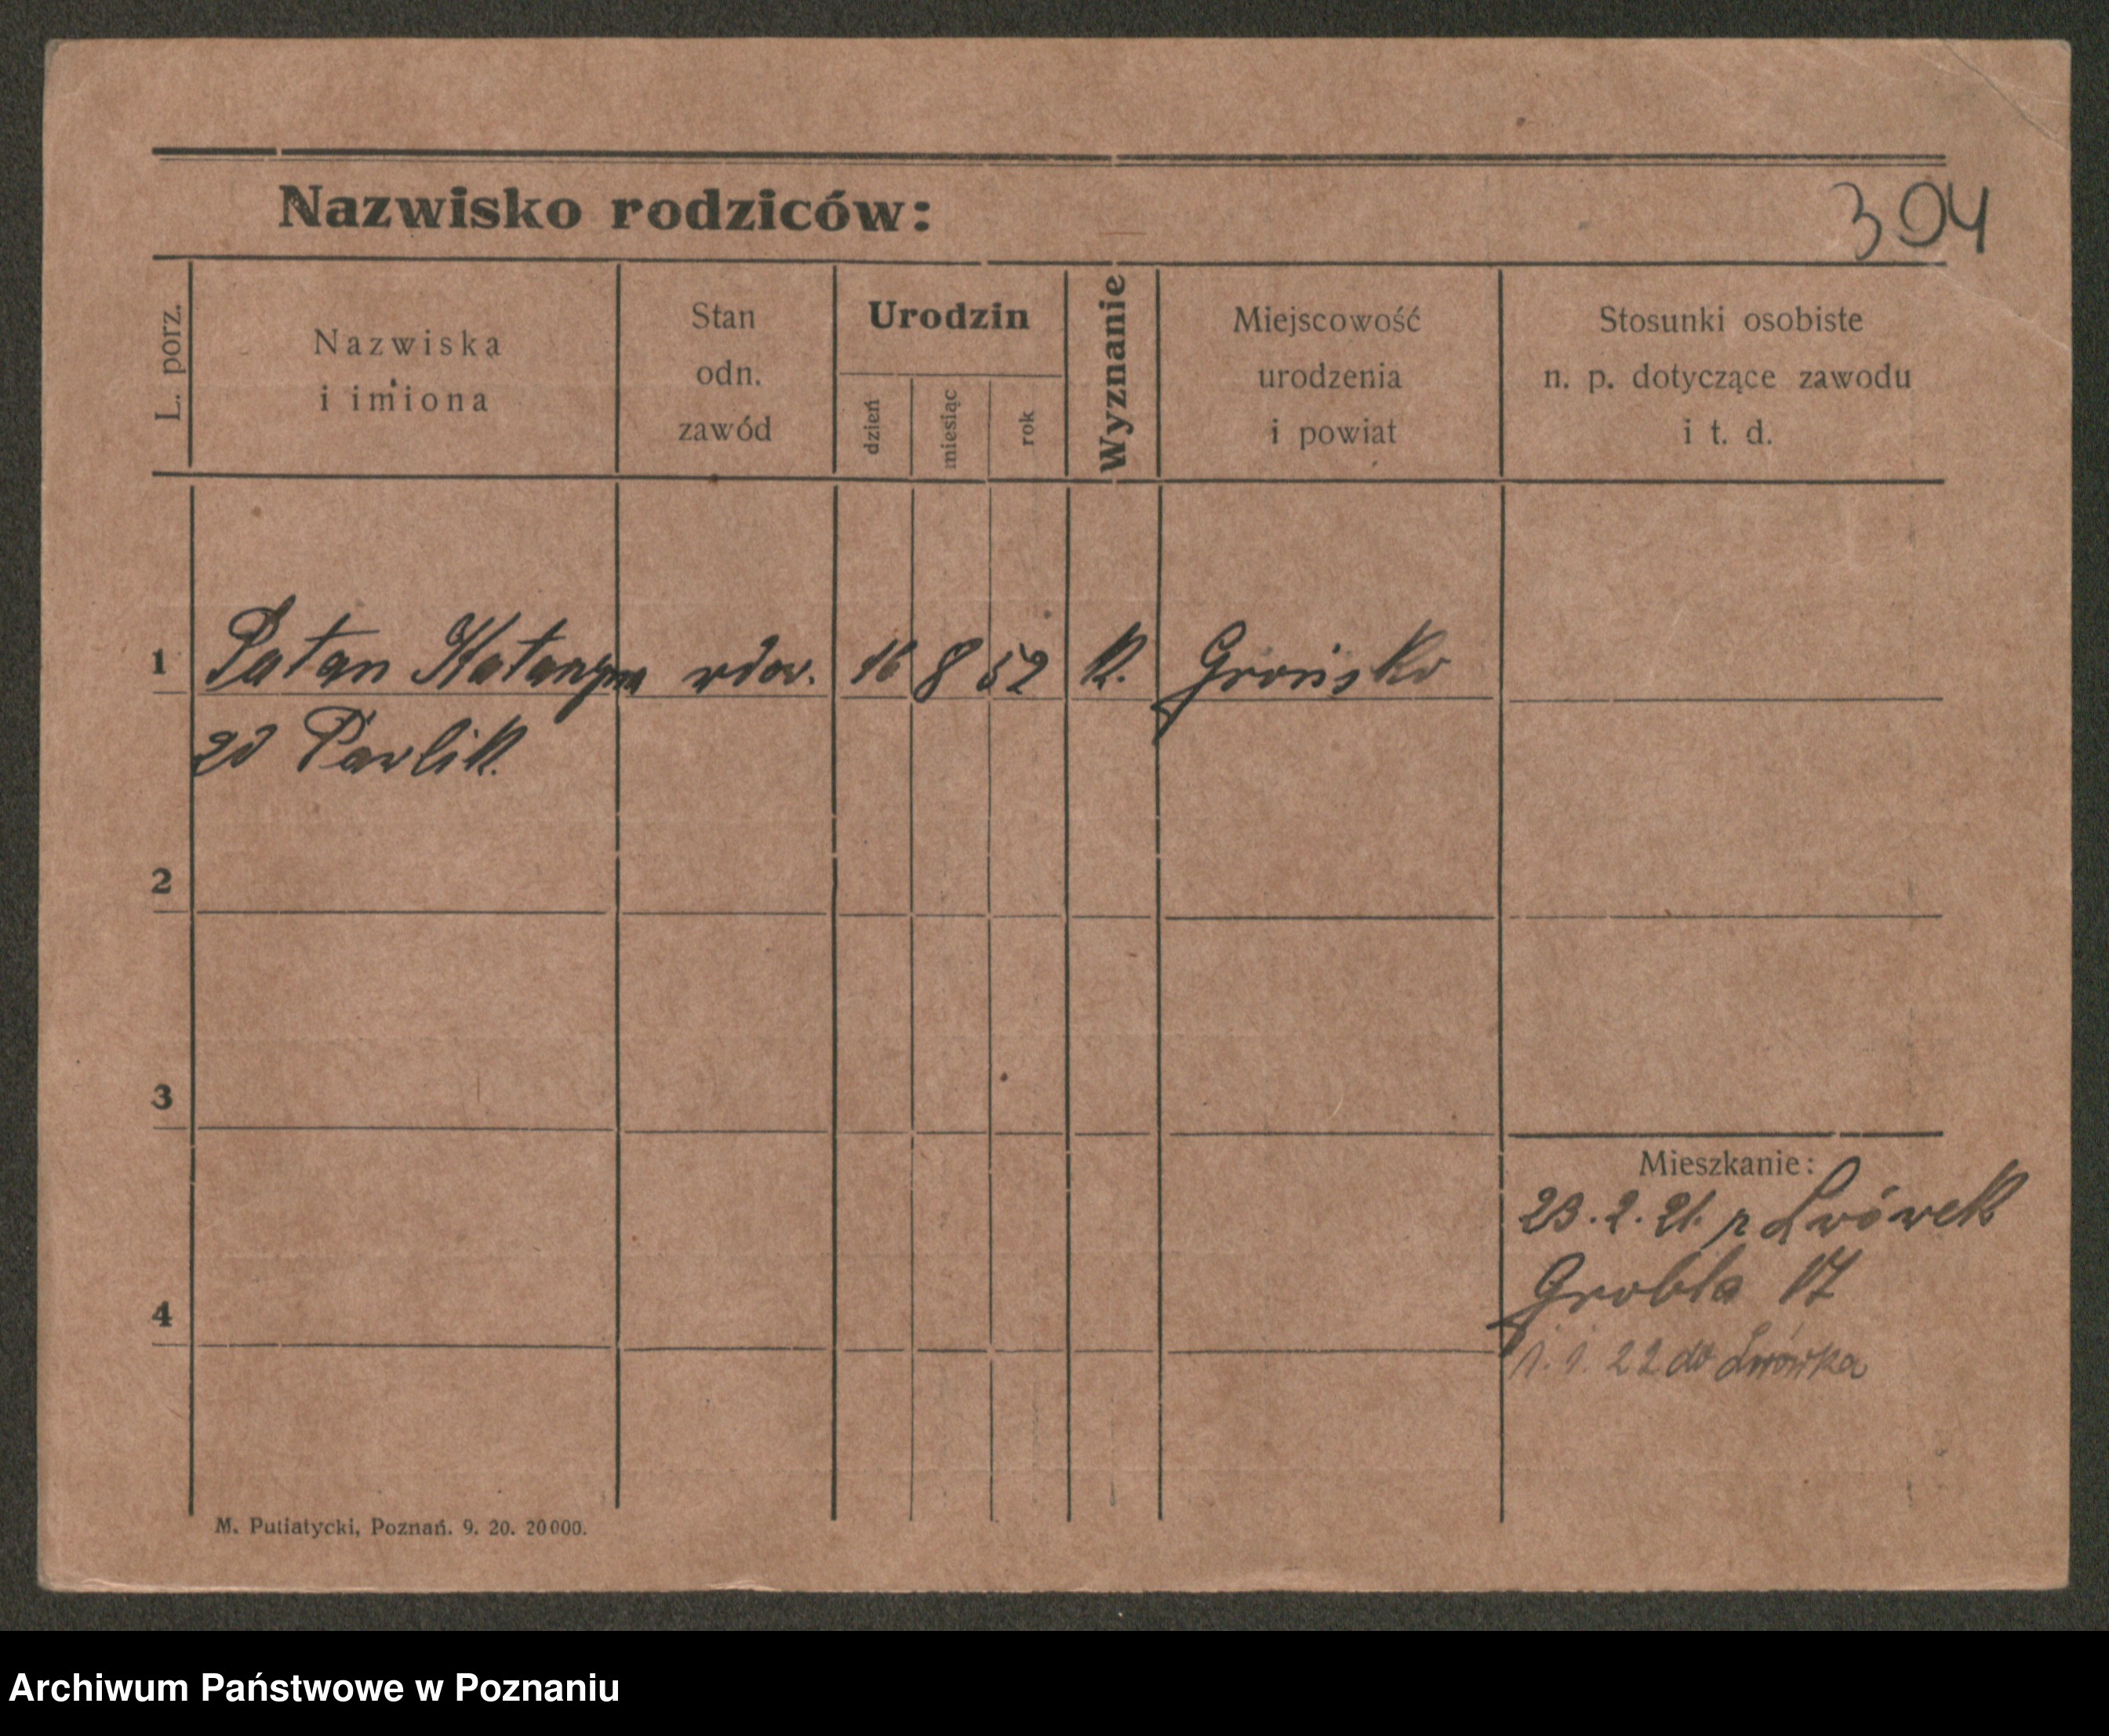 Nazwisko rodziców:
304
L. porz.
Nazwiska
i imiona
Stan
odn.
zawód
Urodzin
dzień
miesiąc
rok
Wyznanie
Miejscowość
urodzenia
i powiat
Stosunki osobiste
n. p. dotyczące zawodu
i t. d.
1 Patan Katarzyna wdow. 16 8 52 k. Grońsko
zd Pawlik.
2
3
Mieszkanie:
23. 2. 21. z Lwówek
Grobla 17
4
1. 1. 22 do Lwówka
M. Putiatycki, Poznań. 9. 20. 20000.
Archiwum Państwowe w Poznaniu